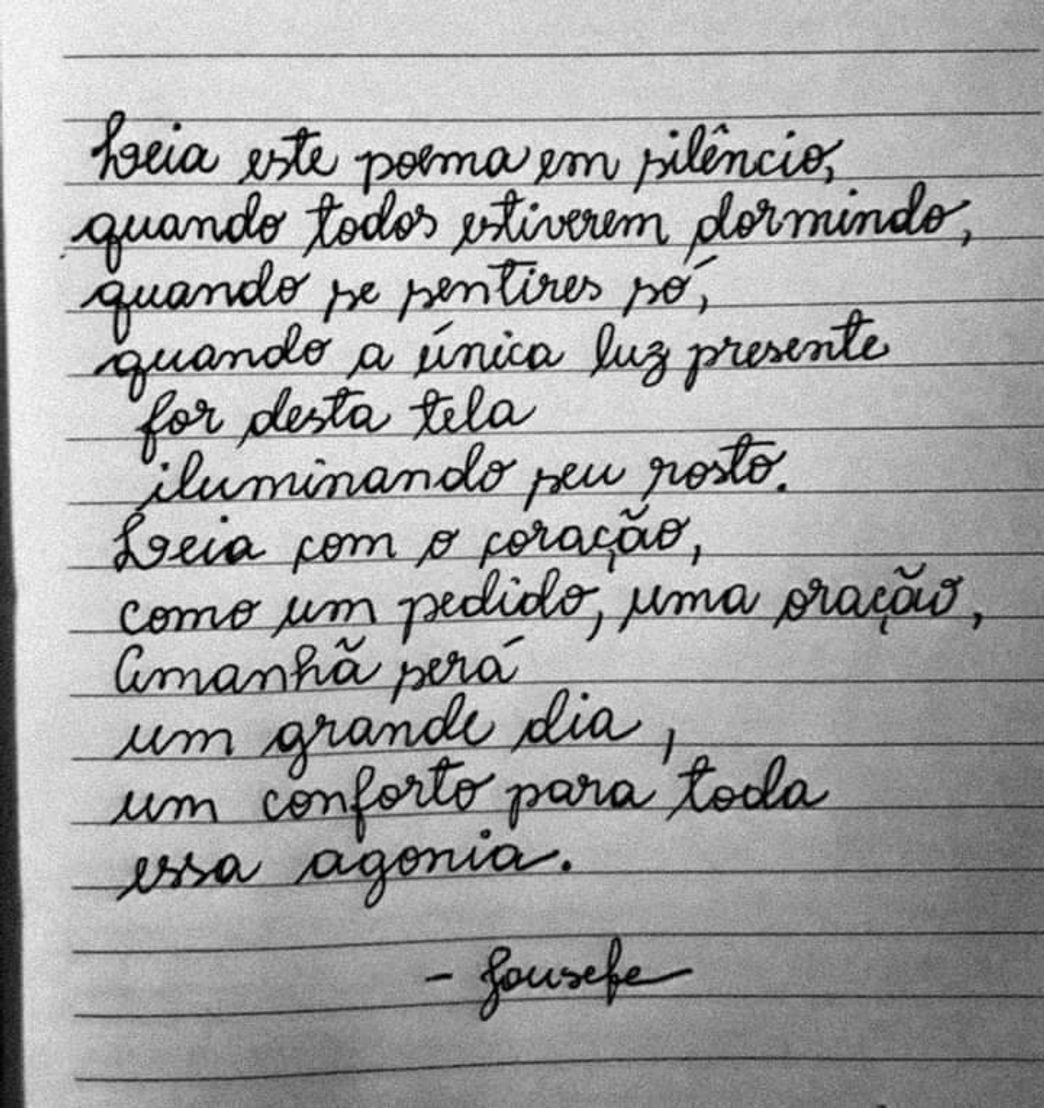 Leia este poema em silêncio,
quando todos estiverem dormindo,
quando se sentires só,
quando a única luz presente
for desta tela
iluminando seu rosto.
Leia com o coração,
como um pedido, uma oração,
Amanhã será
um grande dia,
um conforto para toda
essa agonia.
- Jousefe